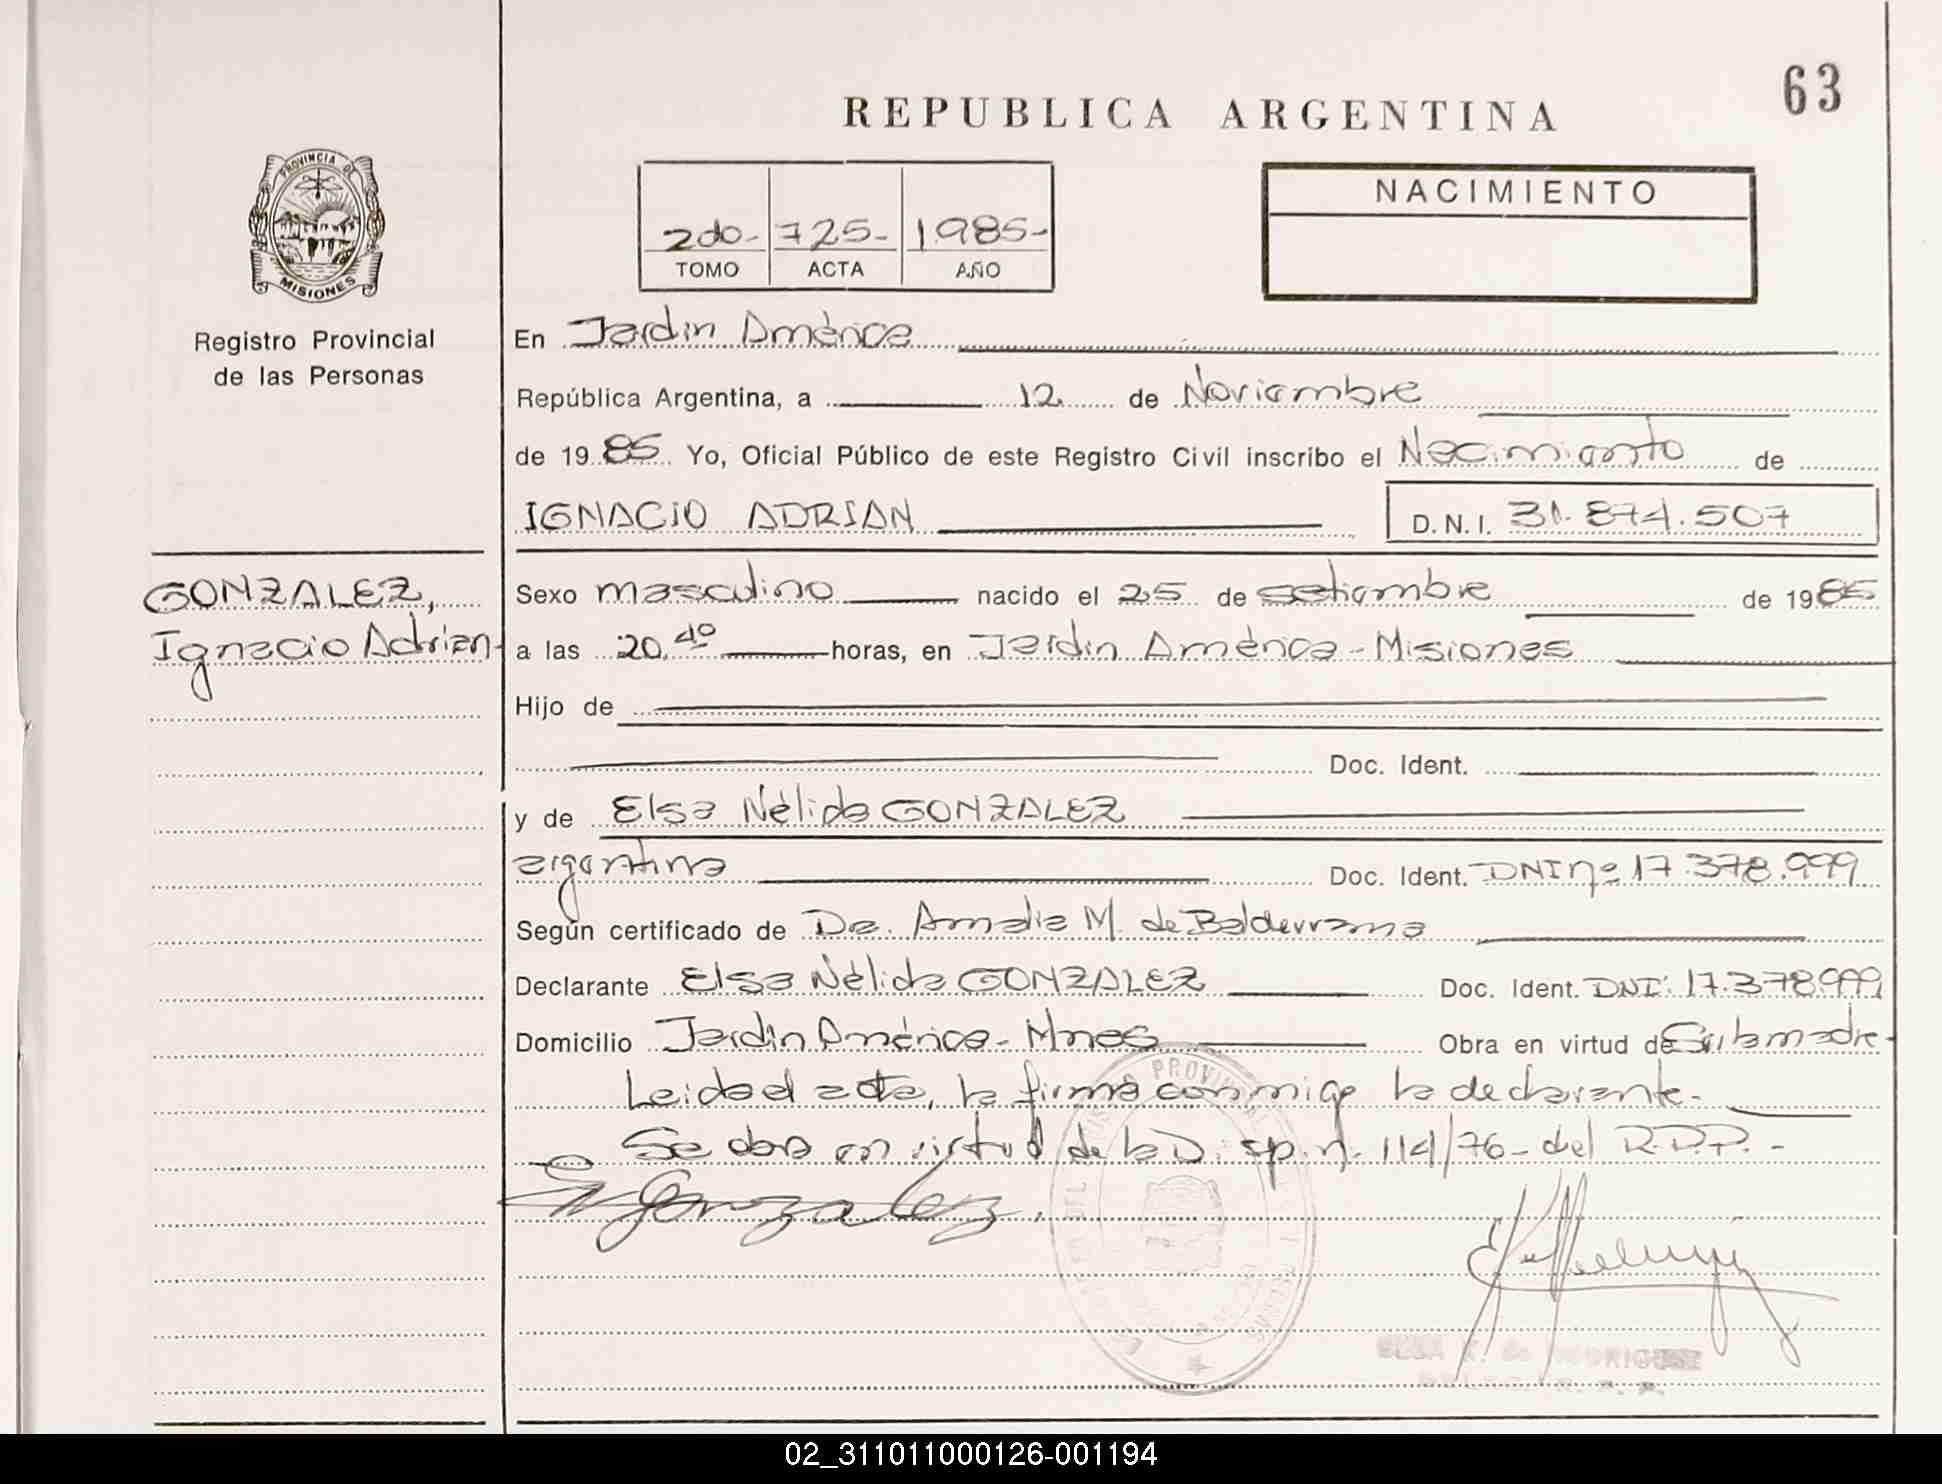 63
REPUBLICA ARGENTINA
PROVINCIA DE
MISIONES
Registro Provincial
de las Personas
2do- 725- 1985-
TOMO ACTA AÑO
NACIMIENTO
En Jardin América
República Argentina, a 12 de Noviembre
de 1985 Yo, Oficial Público de este Registro Civil inscribo el Nacimiento de
IGNACIO ADRIAN D.N.I. 31.874.507
GONZALEZ,
Ignacio Adrian-
Sexo masculino nacido el 25 de setiembre de 1985
a las 20.40 horas, en Jardin América - Misiones
Hijo de
Doc. Ident.
y de Elsa Nélida GONZALEZ
argentina Doc. Ident. DNI nº 17.378.999
Según certificado de Da. Amalia M. de Balderrama
Declarante Elsa Nélida GONZALEZ Doc. Ident. DNI: 17.378.999
Domicilio Jardin América - Mnes Obra en virtud de Ser la madre-
Leida el acta, la firma conmigo la declarante.-
Se obra en virtud de la Disp. n. 114/76- del R.P.P.-
Gonzalez
02_311011000126-001194